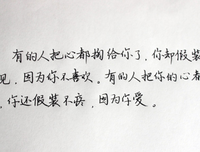 有的人把心都掏给你了，你却假装
见，因为你不喜欢。有的人把你的心都
，你还假装不疼，因为你爱。